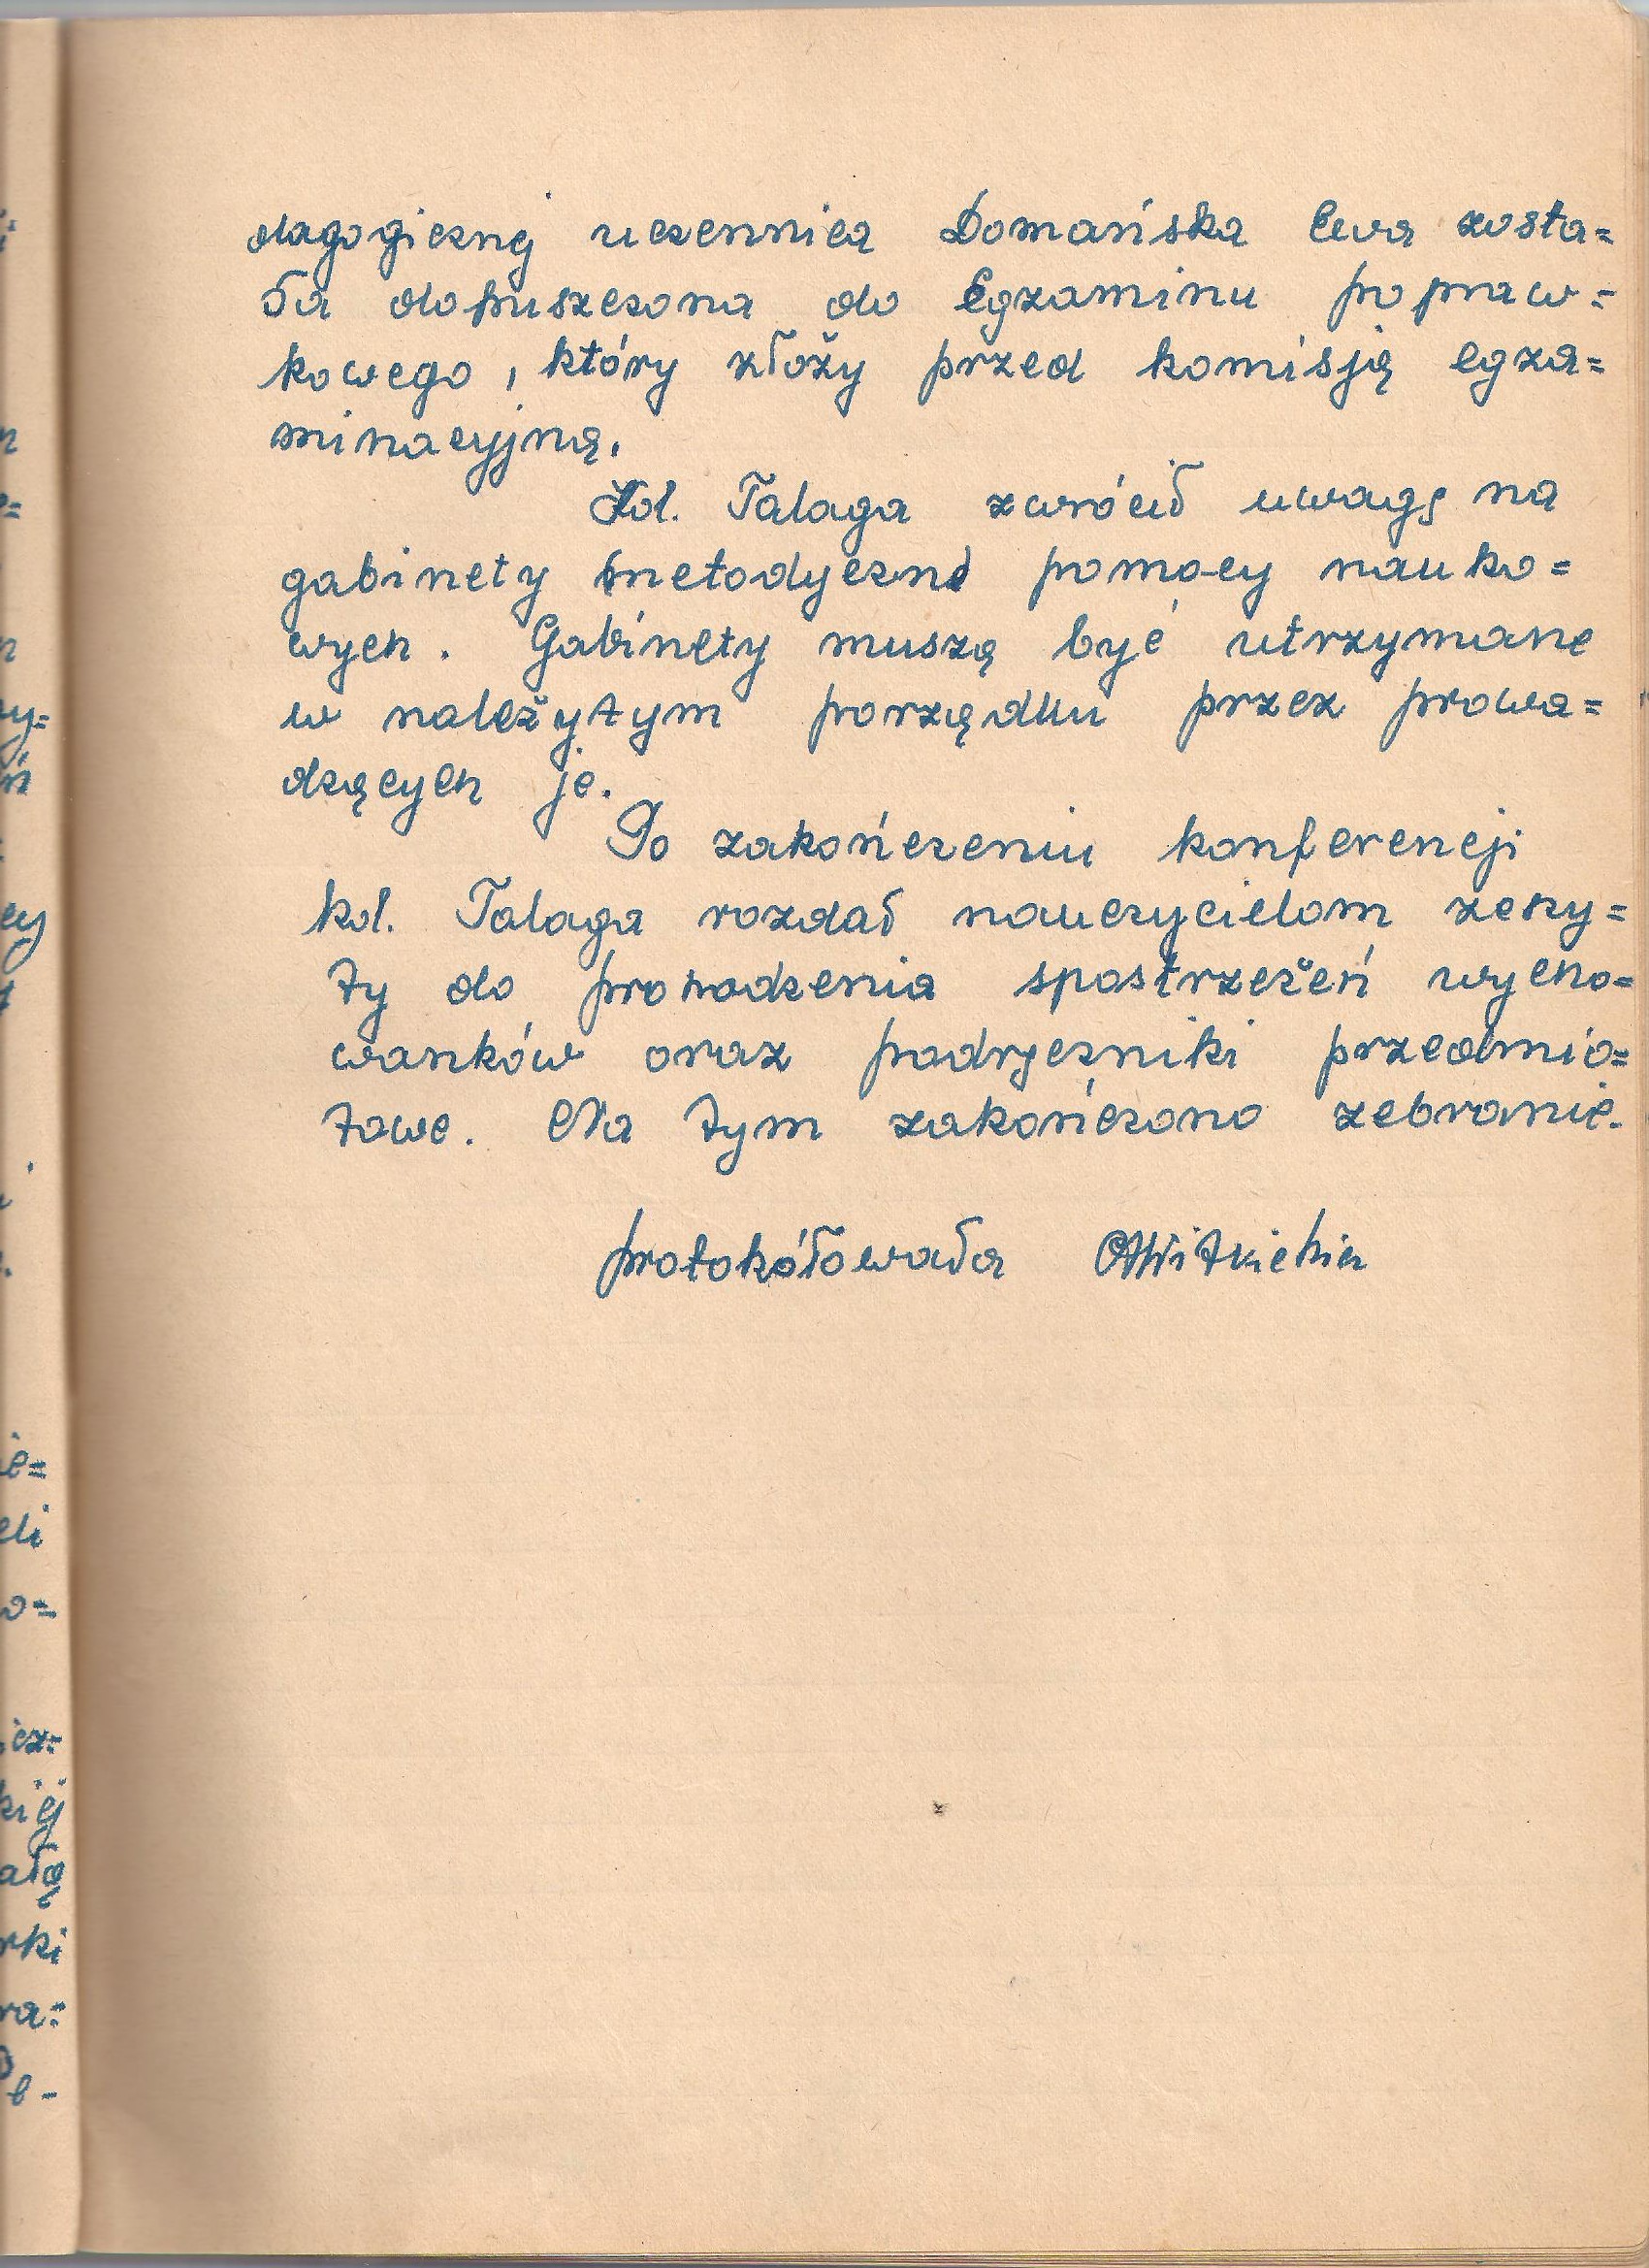 dagogicznej uczennica Domańska Ewa zosta=
ła dopuszczona do Egzaminu popraw=
kowego, który złoży przed komisją egza=
minacyjną.
Kol. Talaga zwrócił uwagę na
gabinety metodyczne pomocy nauko=
wych. Gabinety muszą być utrzymane
w należytym porządku przez prowa=
dzących je.
Po zakończeniu konferencji
kol. Talaga rozdał nauczycielom zeszy=
ty do prowadzenia spostrzeżeń wycho=
wanków oraz podręczniki przedmio=
towe. Na tym zakończono zebranie.
protokółowała